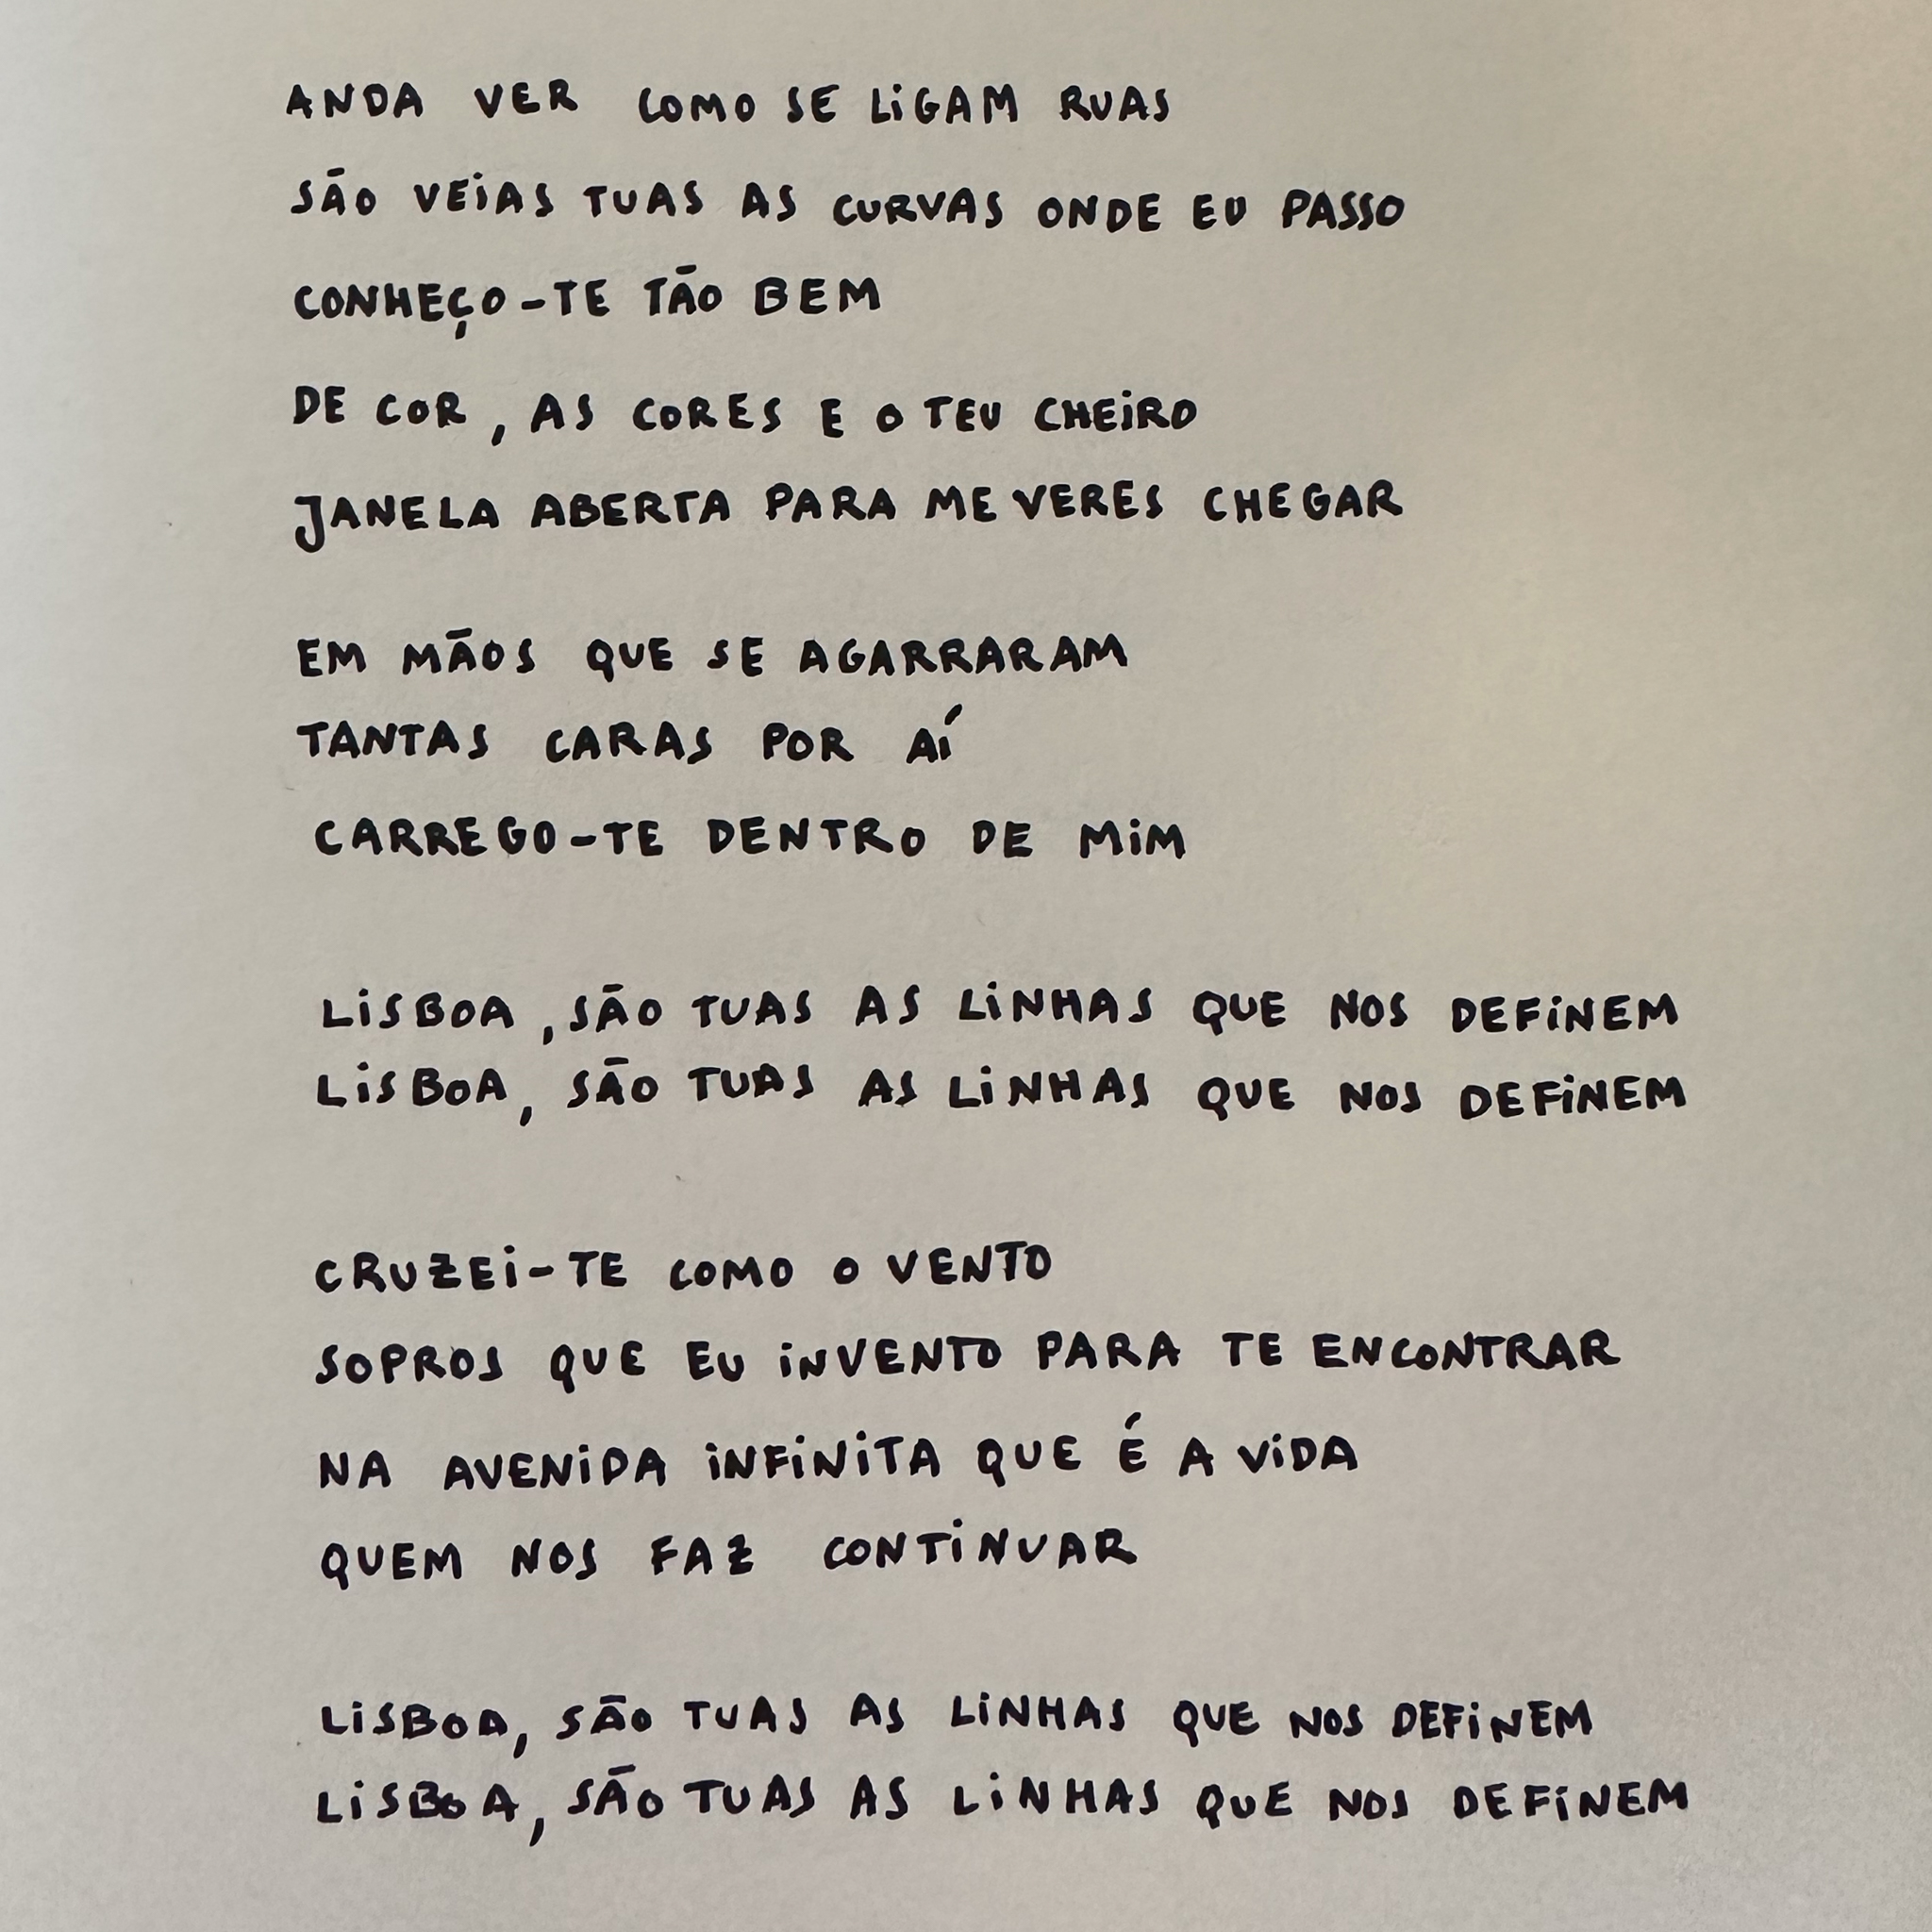 ANDA VER COMO SE LIGAM RUAS
SÃO VEIAS TUAS AS CURVAS ONDE EU PASSO
CONHEÇO-TE TÃO BEM
DE COR, AS CORES E O TEU CHEIRO
JANELA ABERTA PARA ME VERES CHEGAR
EM MÃOS QUE SE AGARRARAM
TANTAS CARAS POR AÍ
CARREGO-TE DENTRO DE MIM
LISBOA, SÃO TUAS AS LINHAS QUE NOS DEFINEM
LISBOA, SÃO TUAS AS LINHAS QUE NOS DEFINEM
CRUZEI-TE COMO O VENTO
SOPROS QUE EU INVENTO PARA TE ENCONTRAR
NA AVENIDA INFINITA QUE É A VIDA
QUEM NOS FAZ CONTINUAR
LISBOA, SÃO TUAS AS LINHAS QUE NOS DEFINEM
LISBOA, SÃO TUAS AS LINHAS QUE NOS DEFINEM